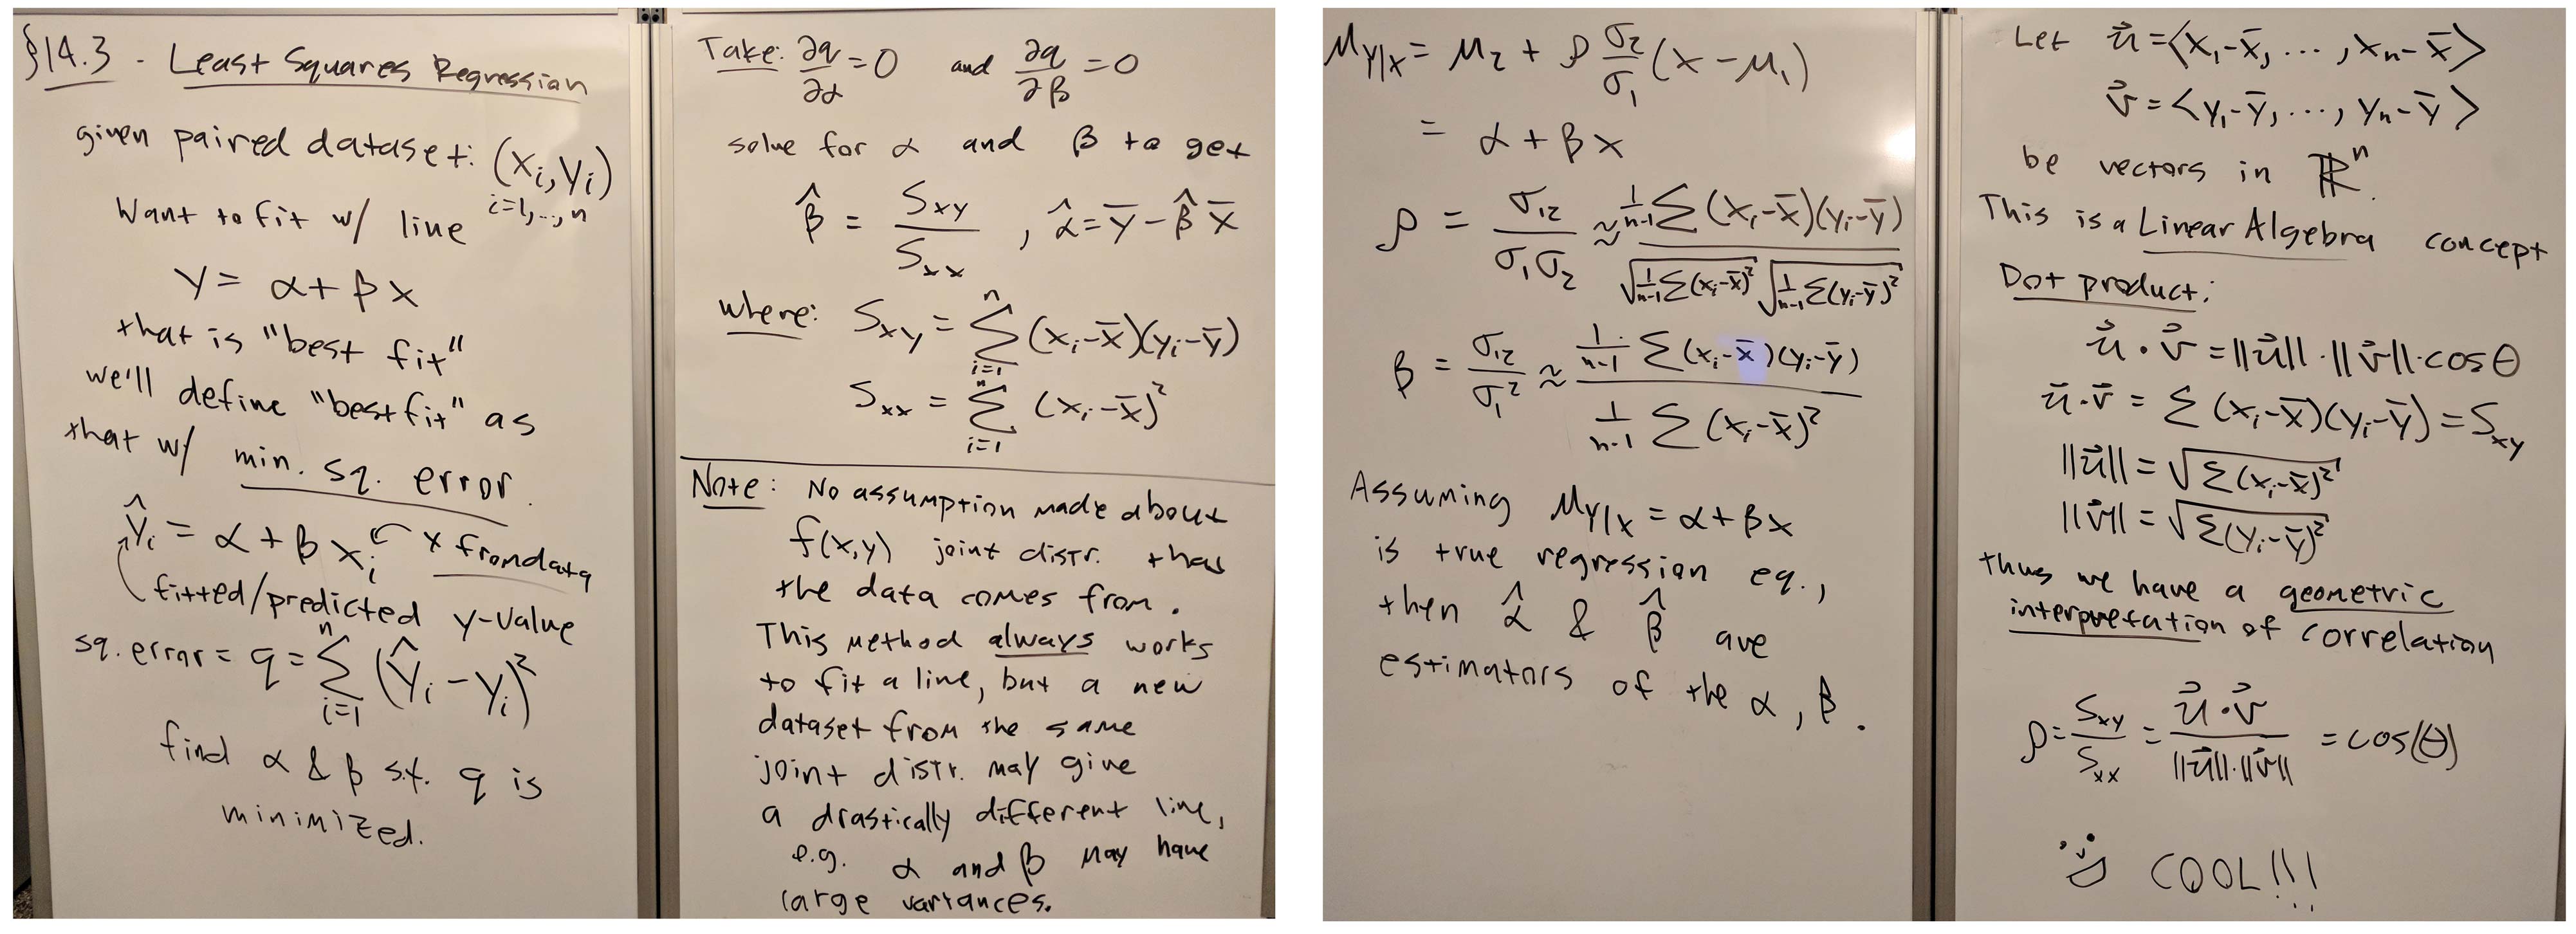 §14.3 - Least Squares Regression
given paired dataset: (xᵢ,yᵢ)
i=1,...,n
Want to fit w/ line
y = α + βx
that is "best fit"
we'll define "best fit" as
that w/ min. sq. error.
ŷᵢ = α + βxᵢ x from data
fitted/predicted y-value
sq. error = q = Σⁿᵢ₌₁ (ŷᵢ - yᵢ)²
find α & β s.t. q is
minimized.
Take: ∂q/∂α = 0 and ∂q/∂β = 0
solve for α and β to get
β̂ = Sxy/Sxx , α̂ = ȳ - β̂ x̄
where: Sxy = Σⁿᵢ₌₁ (xᵢ-x̄)(yᵢ-ȳ)
Sxx = Σⁿᵢ₌₁ (xᵢ-x̄)²
Note: No assumption made about
f(x,y) joint distr. that
the data comes from.
This method always works
to fit a line, but a new
dataset from the same
joint distr. may give
a drastically different line,
e.g. α and β may have
large variances.
μ_Y|x = μ₂ + ρ σ₂/σ₁ (x - μ₁)
= α + βx
ρ = σ₁₂/(σ₁σ₂) ≈ 1/(n-1) Σ(xᵢ-x̄)(yᵢ-ȳ) / (√(1/(n-1) Σ(xᵢ-x̄)²) √(1/(n-1) Σ(yᵢ-ȳ)²))
β = σ₁₂/σ₁² ≈ 1/(n-1) Σ(xᵢ-x̄)(yᵢ-ȳ) / (1/(n-1) Σ(xᵢ-x̄)²)
Assuming μ_Y|x = α + βx
is true regression eq.,
then α̂ & β̂ are
estimators of the α, β.
Let u⃗ = <x₁-x̄, ..., xn-x̄>
v⃗ = <y₁-ȳ, ..., yn-ȳ>
be vectors in ℝⁿ.
This is a Linear Algebra concept
Dot product:
u⃗ · v⃗ = ||u⃗|| · ||v⃗|| · cos θ
u⃗ · v⃗ = Σ(xᵢ-x̄)(yᵢ-ȳ) = Sxy
||u⃗|| = √Σ(xᵢ-x̄)²
||v⃗|| = √Σ(yᵢ-ȳ)²
thus we have a geometric
interpretation of correlation
ρ = Sxy/Sxx = u⃗·v⃗/(||u⃗||·||v⃗||) = cos(θ)
COOL!!!